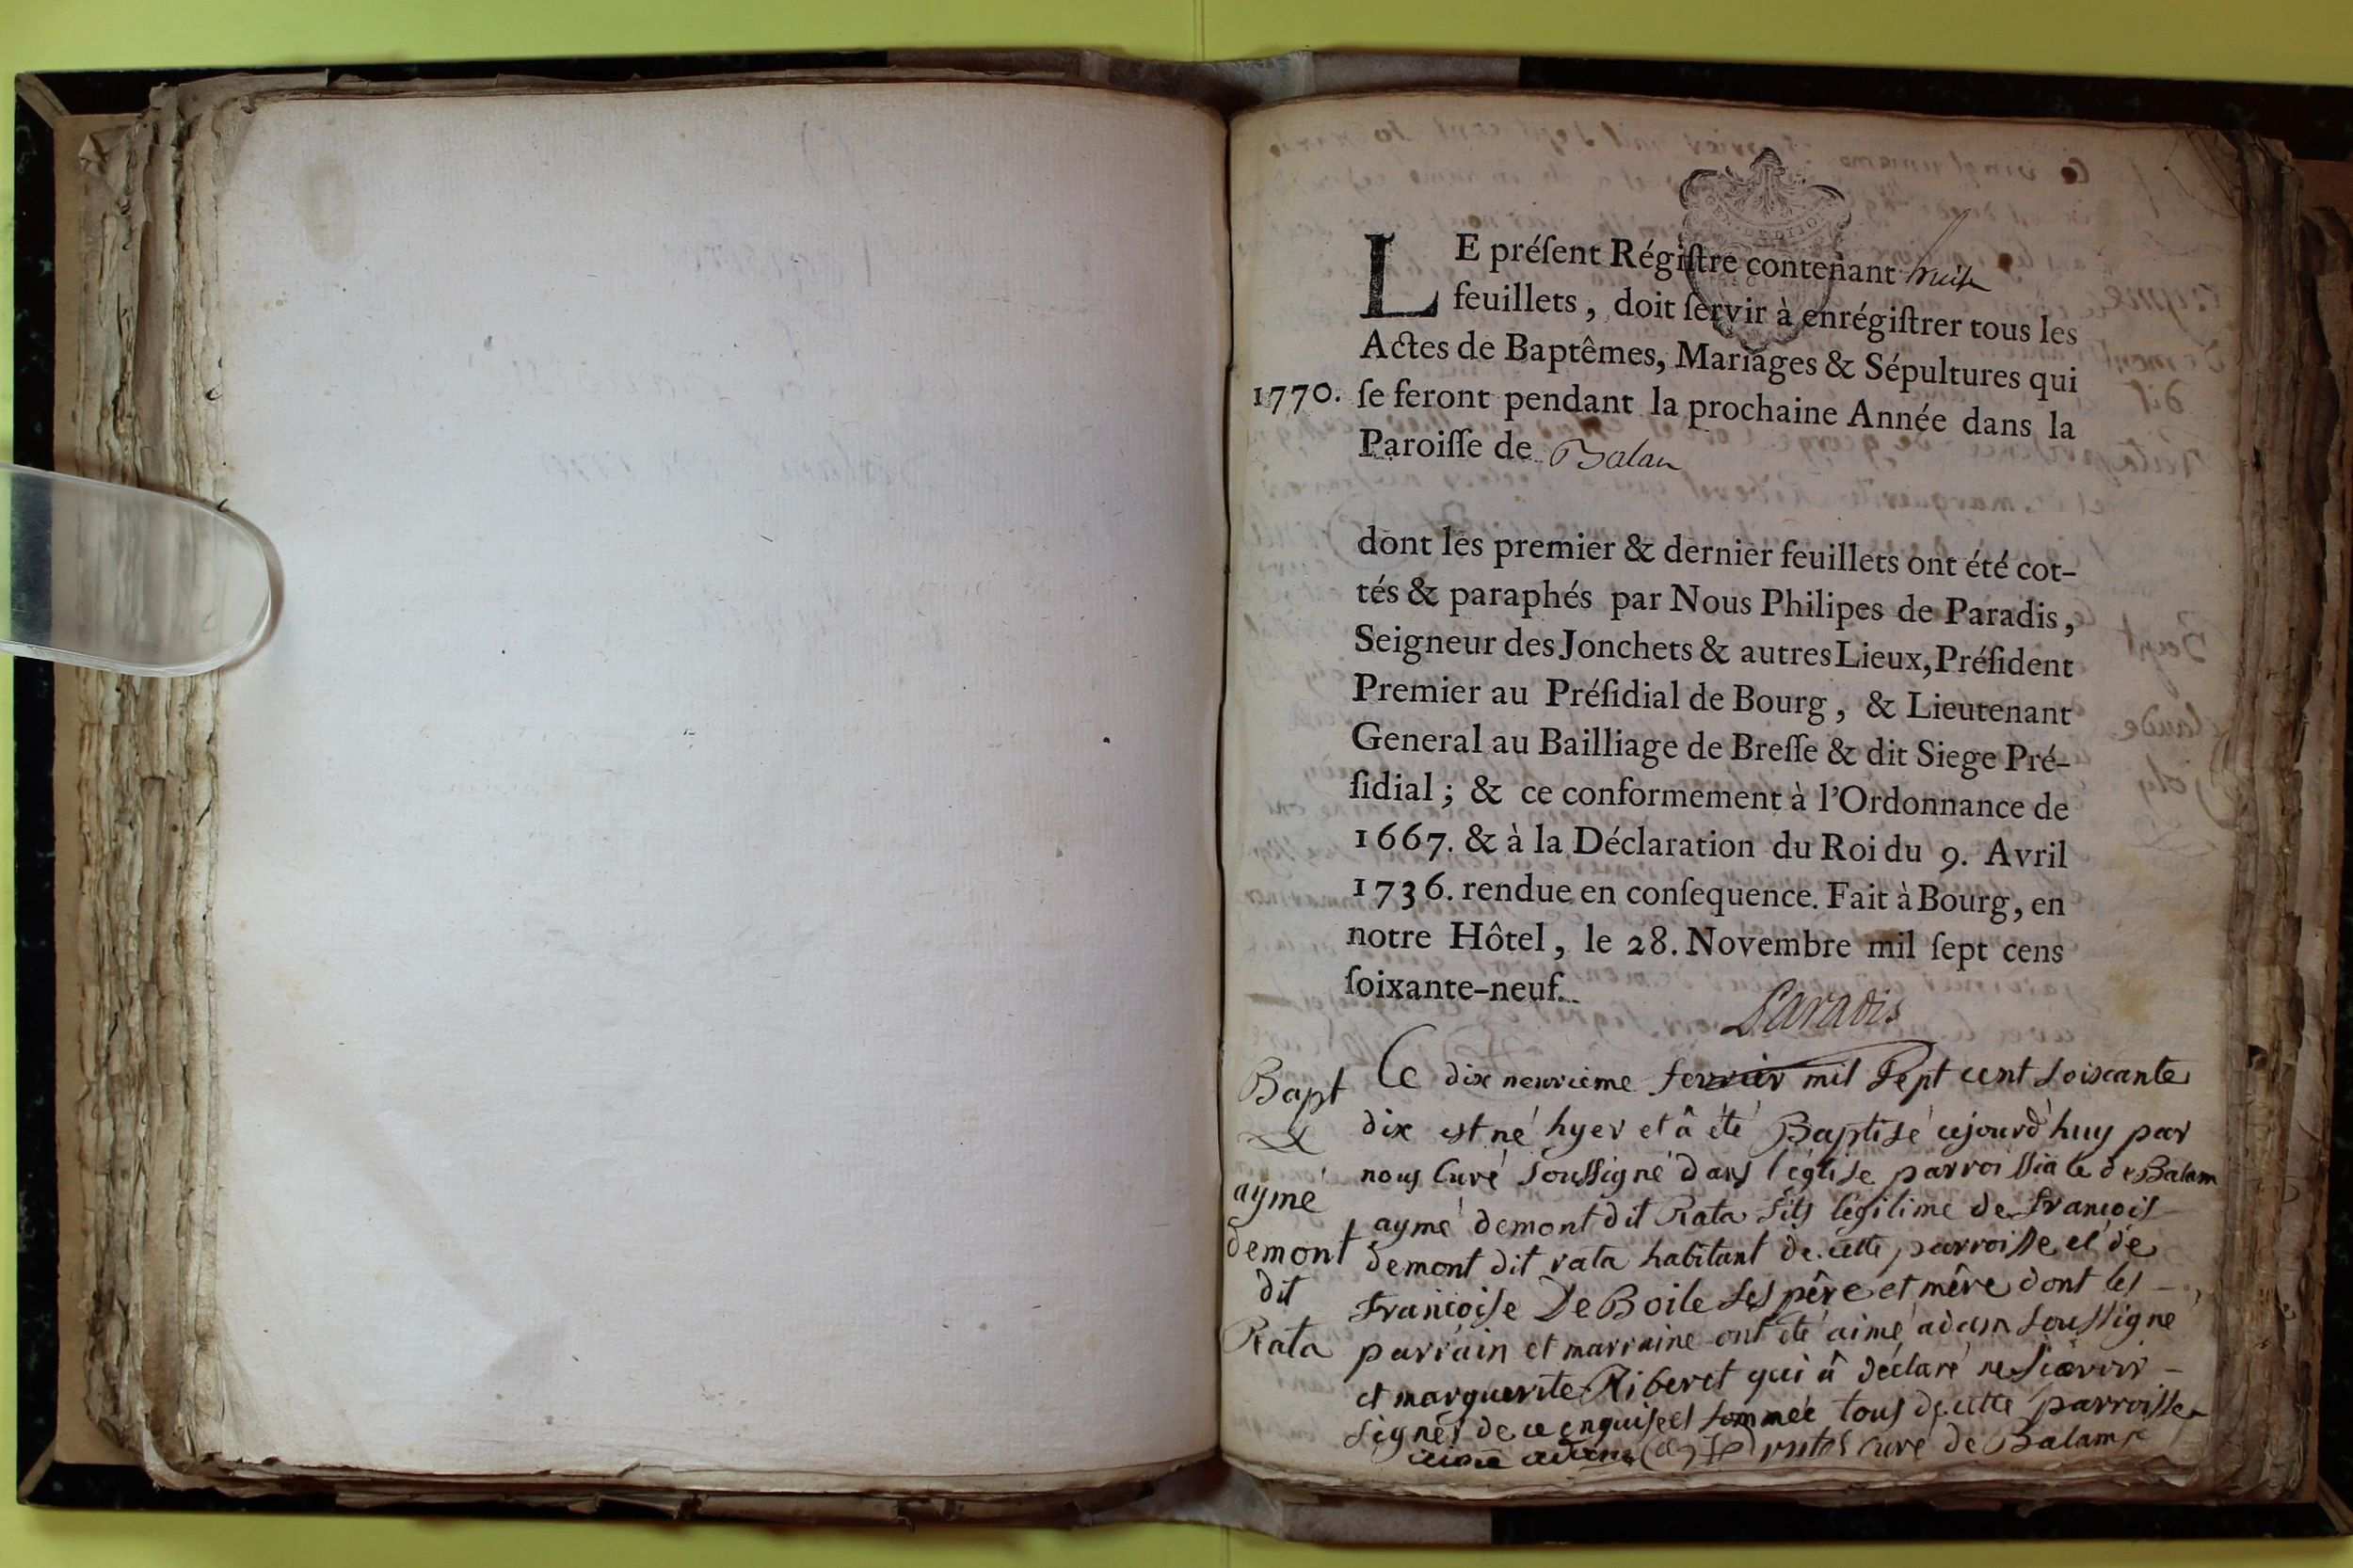 LE préſent Régiſtre contenant huit
feuillets, doit ſervir à enrégiſtrer tous les
Actes de Baptêmes, Mariages & Sépultures qui
1770. ſe feront pendant la prochaine Année dans la
Paroiſſe de Balan
dont les premier & dernier feuillets ont été cot-
tés & paraphés par Nous Philipes de Paradis,
Seigneur des Jonchets & autres Lieux, Préſident
Premier au Préſidial de Bourg, & Lieutenant
General au Bailliage de Breſſe & dit Siege Pré-
ſidial; & ce conformement à l'Ordonnance de
1667. & à la Déclaration du Roi du 9. Avril
1736. rendue en conſequence. Fait à Bourg, en
notre Hôtel, le 28. Novembre mil ſept cens
ſoixante-neuf.
Paradis
Bapt
aymé
demont
dit
Rata
Ce dix neuvieme fevrier mil Sept cent soixante
dix est né hyer et â été Baptisé cejourd'huy par
nous Curé Soussigné dans l'église parroissiale de Balam
aymé demont dit Rata fils légitime de françois
demont dit rata habitant de cette parroisse et de
françoise De Boile ses père et mêre dont les
parrain et marraine ont été aimé adam soussigné
et marguerite Riberet qui â déclaré ne sçavoir
signer de ce enquise et sommée tous de cette parroisse
aimé adam curé de Balam